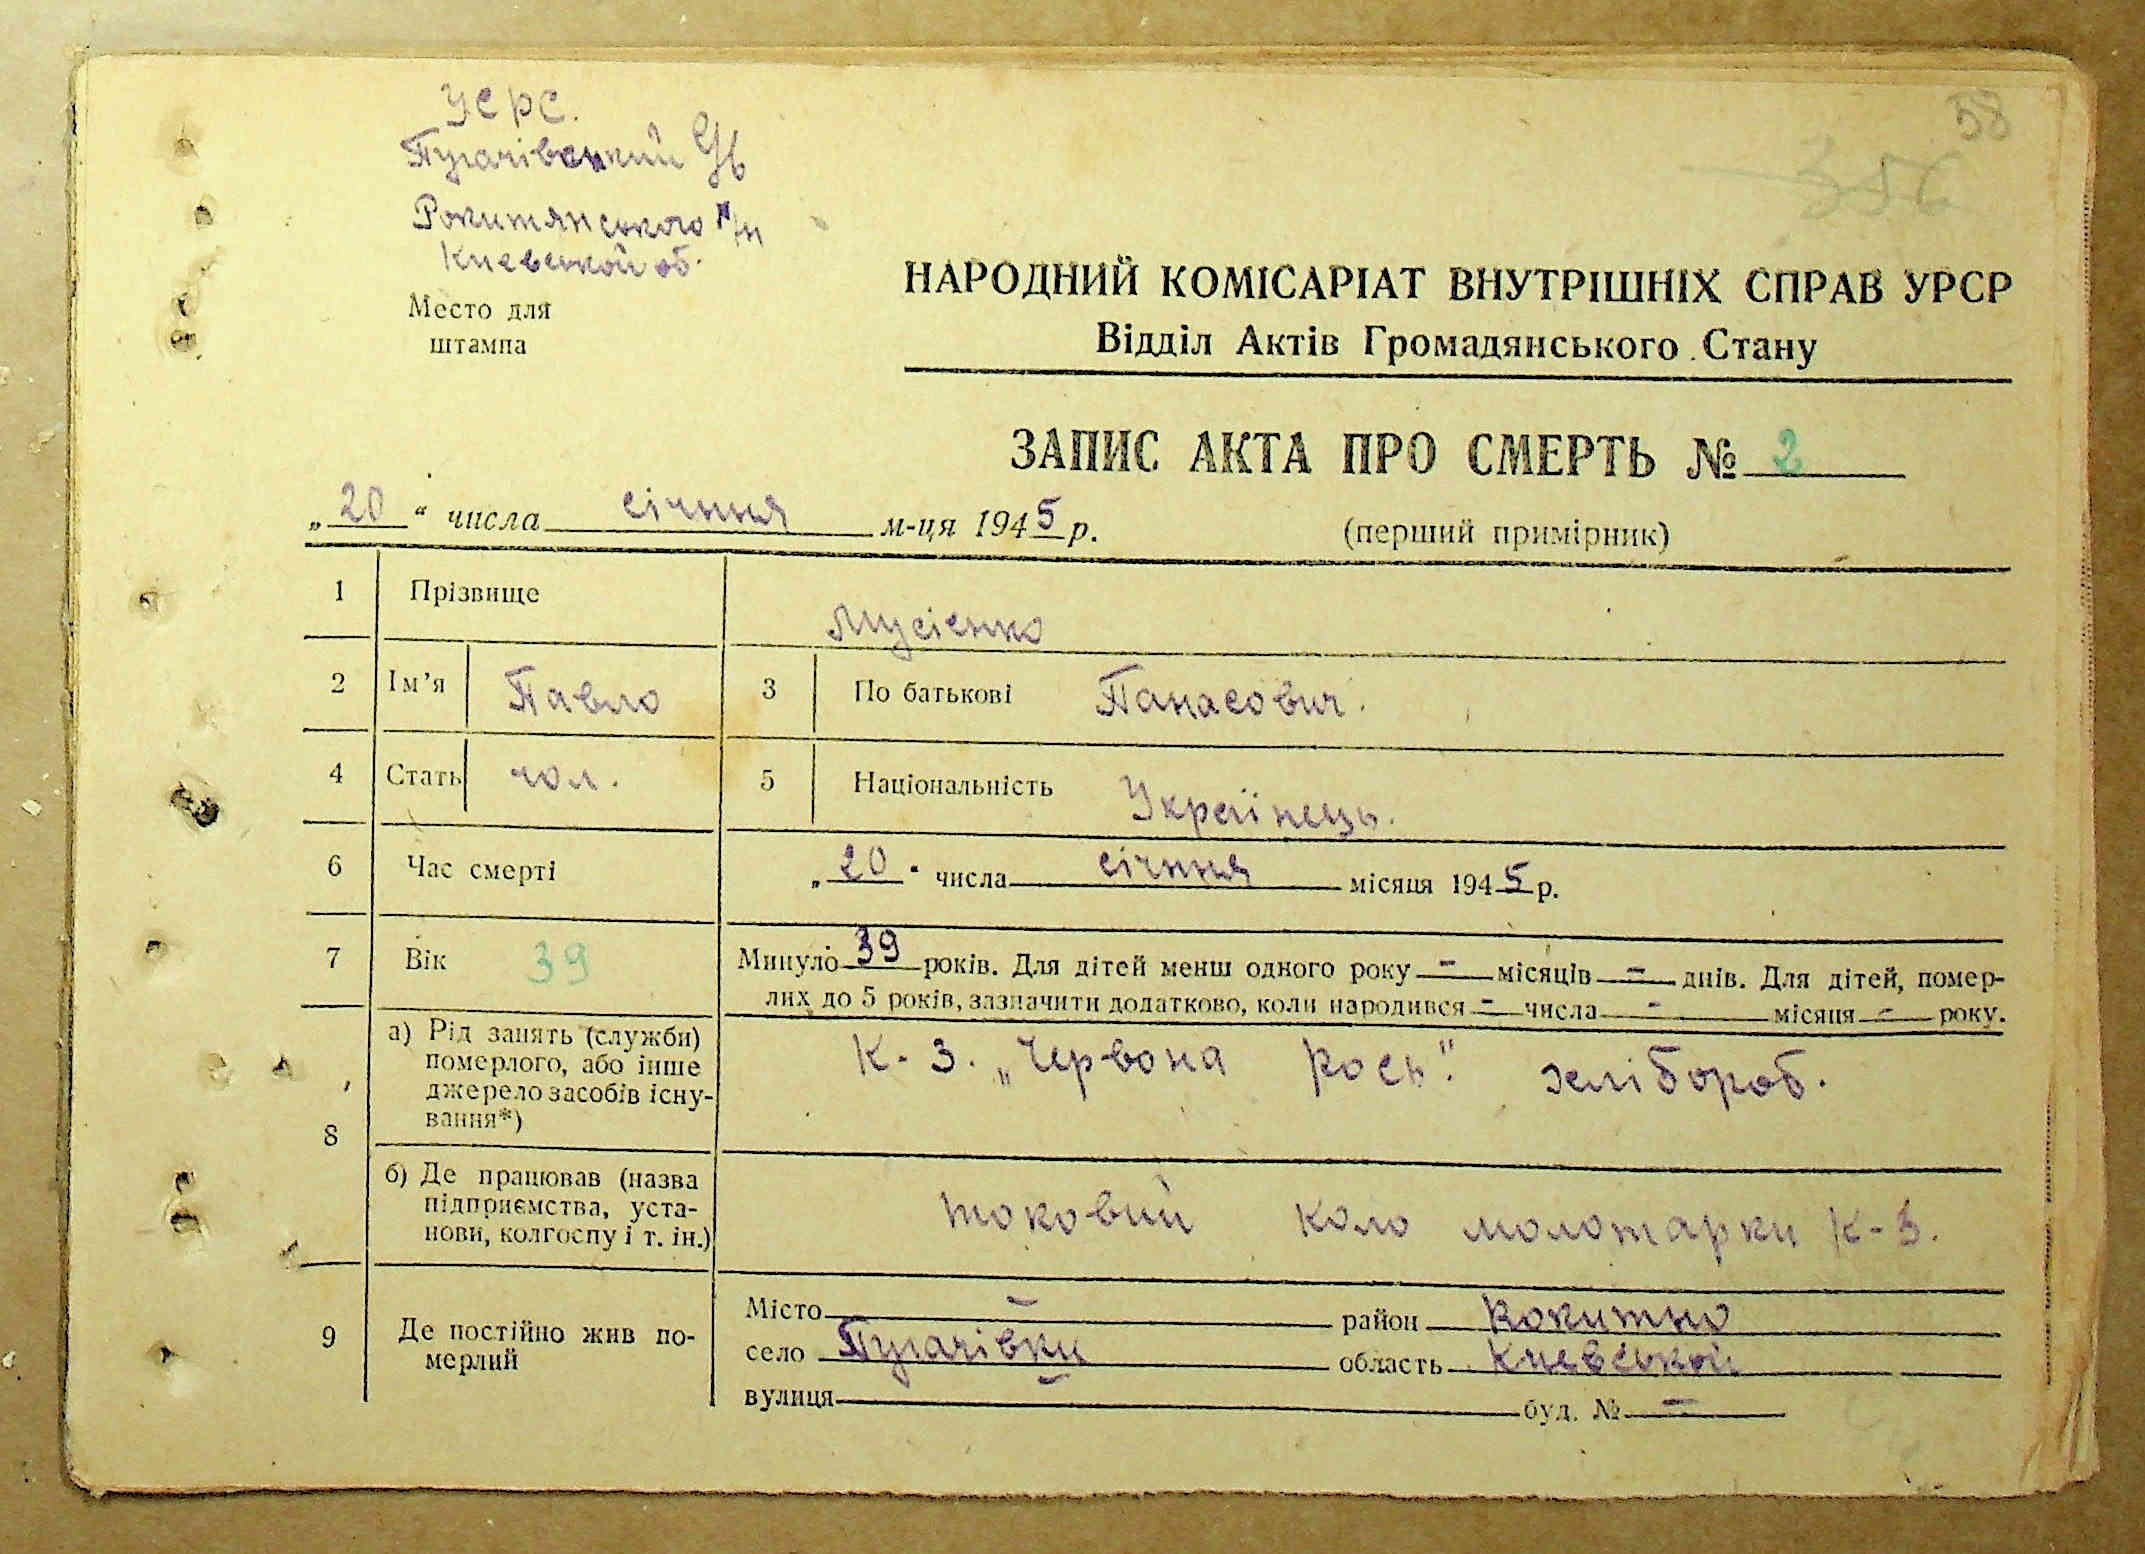 58
356
УСРС.
Пугачівський
Рокитянського р/н
Киевської об.
Место для
штампа
НАРОДНИЙ КОМІСАРІАТ ВНУТРІШНІХ СПРАВ УРСР
Відділ Актів Громадянського Стану
ЗАПИС АКТА ПРО СМЕРТЬ № 2
„20“ числа січння м-ця 1945 р.
(перший примірник)
1 Прізвище Мусієнко
2 Ім’я Павло 3 По батькові Панасович.
4 Стать чол. 5 Національність Українець.
6 Час смерті „20“ числа січння місяця 1945 р.
7 Вік 39 Минуло 39 років. Для дітей менш одного року – місяців – днів. Для дітей, помер-
лих до 5 років, зазначити додатково, коли народився – числа – місяця – року.
8 а) Рід занять (служби)
померлого, або інше
джерело засобів існу-
вання*)
К-з. „Червона Рось". хлібороб.
б) Де працював (назва
підприємства, уста-
нови, колгоспу і т. ін.)
токовий коло молотарки К-з.
9 Де постійно жив по-
мерлий
Місто – район Рокитно
село Пугачівки область Киевської
вулиця – буд. № –